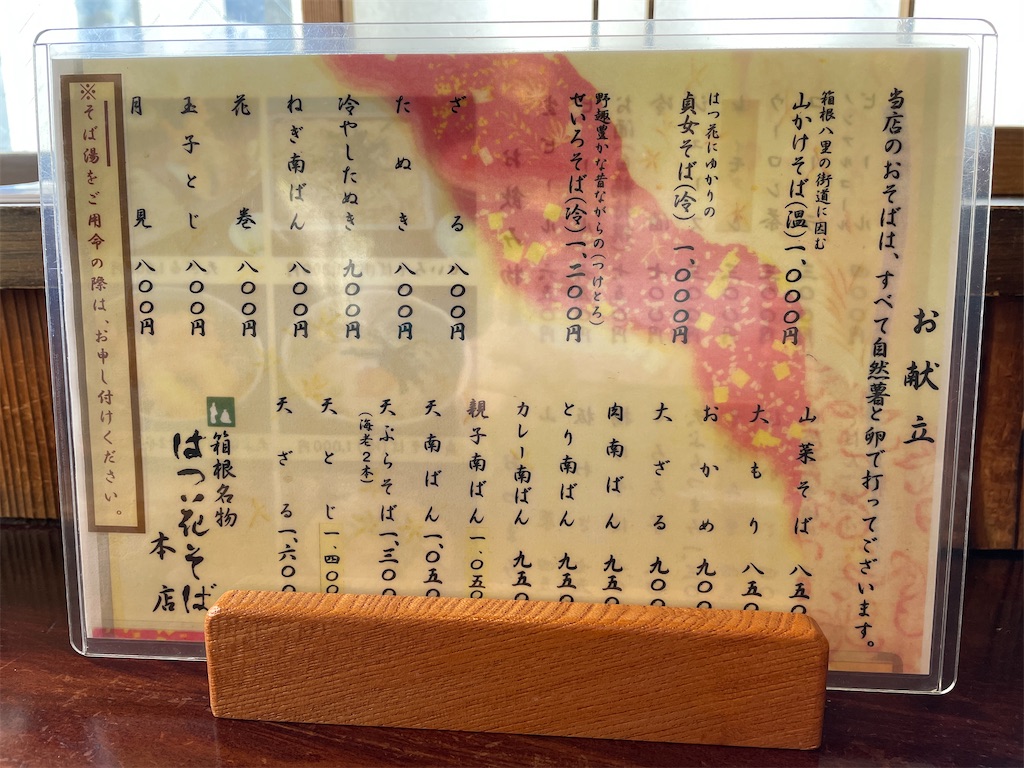 お献立
当店のおそばは、すべて自然薯と卵で打ってございます。
箱根八里の街道に因む
山かけそば(温)一、〇〇〇円
はつ花にゆかりの
貞女そば(冷)一、〇〇〇円
野趣豊かな昔ながらの(つけとろ)
せいろそば(冷)一、二〇〇円
ざる 八〇〇円
たぬき 八〇〇円
冷やしたぬき 九〇〇円
ねぎ南ばん 八〇〇円
花巻 八〇〇円
玉子とじ 八〇〇円
月見 八〇〇円
山菜そば 八五〇
大もり 八五〇
おかめ 九〇〇
大ざる 九〇〇
肉南ばん 九五〇
とり南ばん 九五〇
カレー南ばん 九五〇
親子南ばん 一、〇五〇
天南ばん 一、〇五〇
天ぷらそば 一、三〇〇
(海老2本)
天とじ 一、四〇〇
天ざる 一、六〇〇
箱根名物
はつ花そば
本店
※そば湯をご用命の際は、お申し付けください。